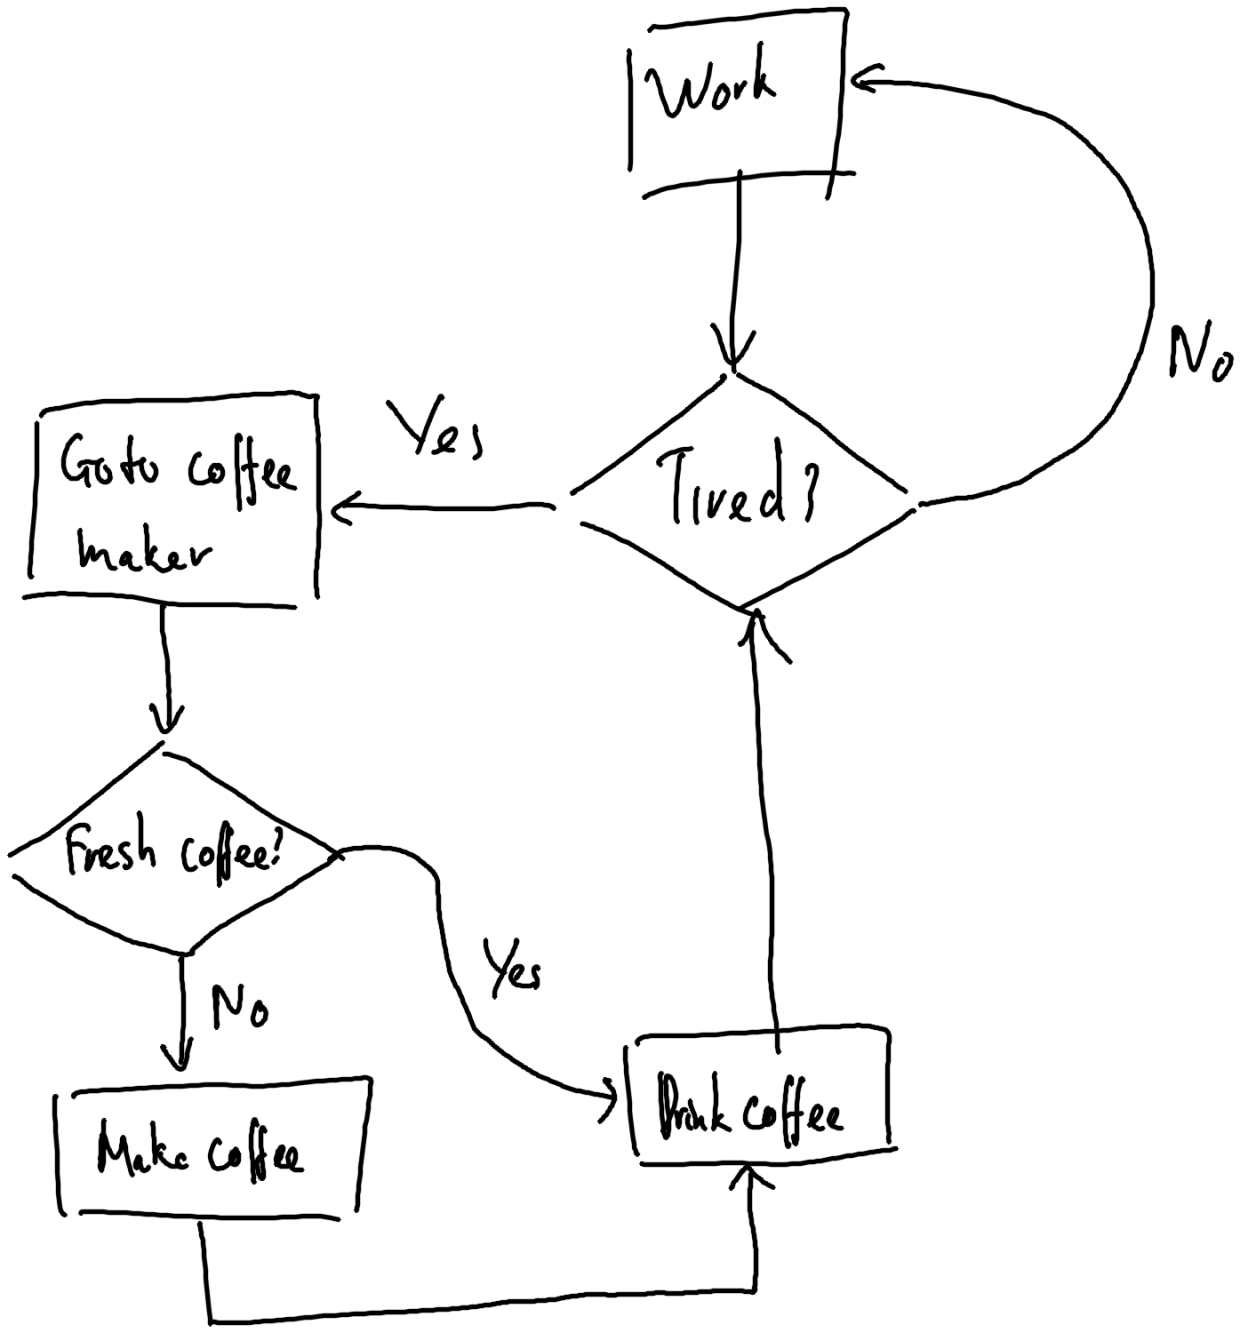 Work
No
Yes
Tired?
Goto coffee
maker
Fresh coffee?
Yes
No
Drink coffee
Make coffee